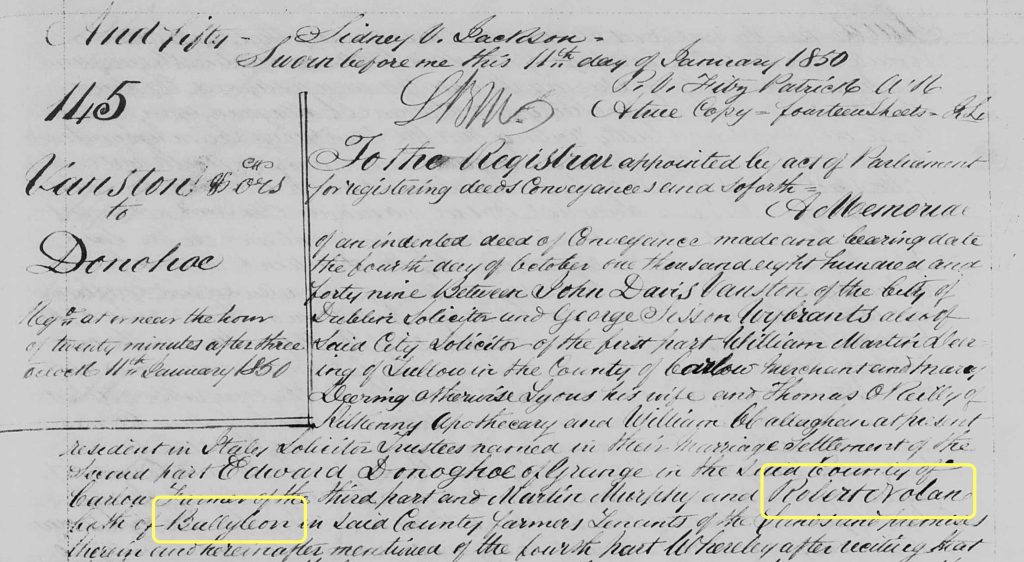 And fifty - Sidney V. Jackson -
Sworn before me this 11th day of January 1850
P. V. Fitz Patrick A R
A true Copy - fourteen Sheets -
145
Vanston & ors
to
Donohoe
Regd at or near the hour
of twenty minutes after three
oclock 11th January 1850
To the Registrar appointed by act of Parliament
for registering deeds Conveyances and soforth -
A Memorial
of an indented deed of Conveyance made and bearing date
the fourth day of October one thousand eight hundred and
forty nine Between John Davis Vanston of the City of
Dublin Solicitor and George Wybrants also of
said City Solicitor of the first part William Martin Deer-
ing of Tullow in the County of Carlow Merchant and Mary
Deering otherwise Lyons his wife and Thomas O'Reilly of
Kilkenny Apothecary and William O'Callaghan at present
resident in Solicitor Trustees named in their Marriage Settlement of the
Second part Edward Donoghoe of Grange in the said County of
Carlow Farmer of the third part and Martin Murphy and Robert Nolan
both of Ballyleon in said County farmers Tenants of the lands and premises
therein and hereinafter mentioned of the fourth part Whereby after reciting that